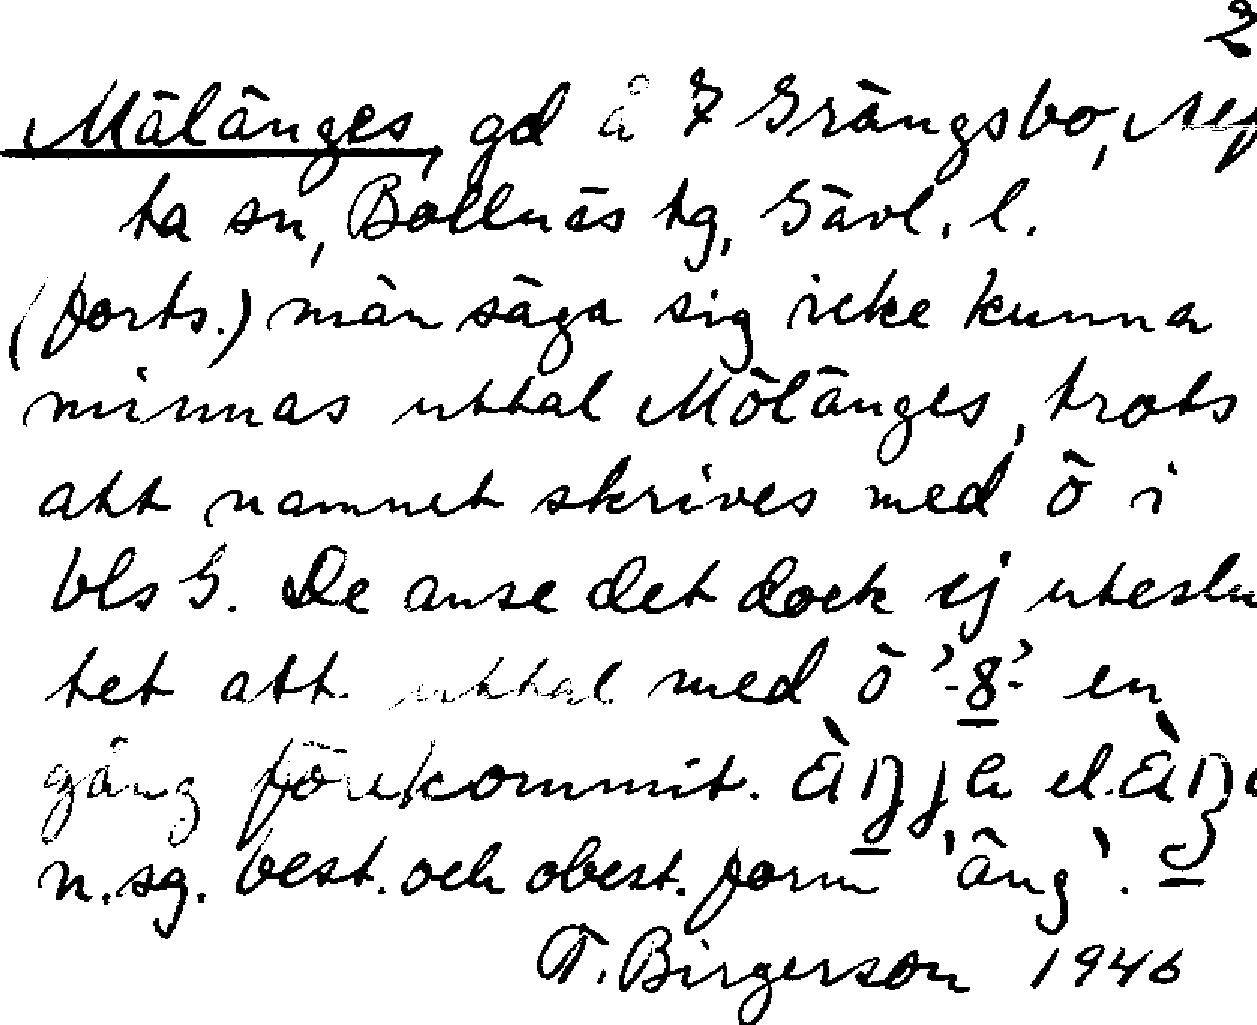 2
Mälänges, gd å 7 Grängsbo, Nef
ta sn, Bollnäs tg, Gävl. l.
(forts.) män säga sig icke kunna
minnas uttal Mölänges, trots
att namnet skrives med ö i
bls G. De anse det dock ej uteslu
tet att uttal med ö '-8-' en
gång förekommit. el.
n. sg. best. och obest. form 'äng'.
T. Birgerson 1946